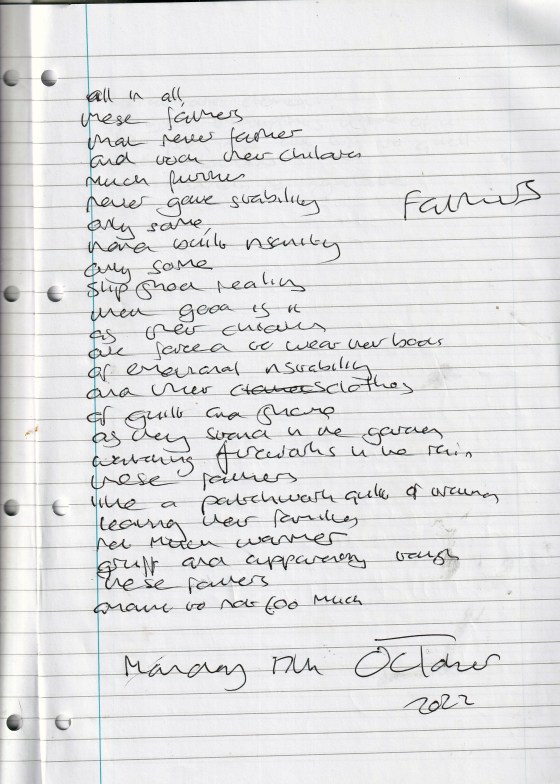 all in all
these fathers
that never father
and push their children
much further
never gave stability
only some
hand built insanity
only some
slip shod reality
what good is it
as their children
are forced to wear the boots
of emotional instability
and their clothes
of guilt and shame
as they stand in the garden
watching fireworks in the rain
these fathers
like a patchwork quilt of
leaving their families
not much warmer
gruff and apparently tough
these fathers
amount to not too much
Fathers
Monday 17th October
2022